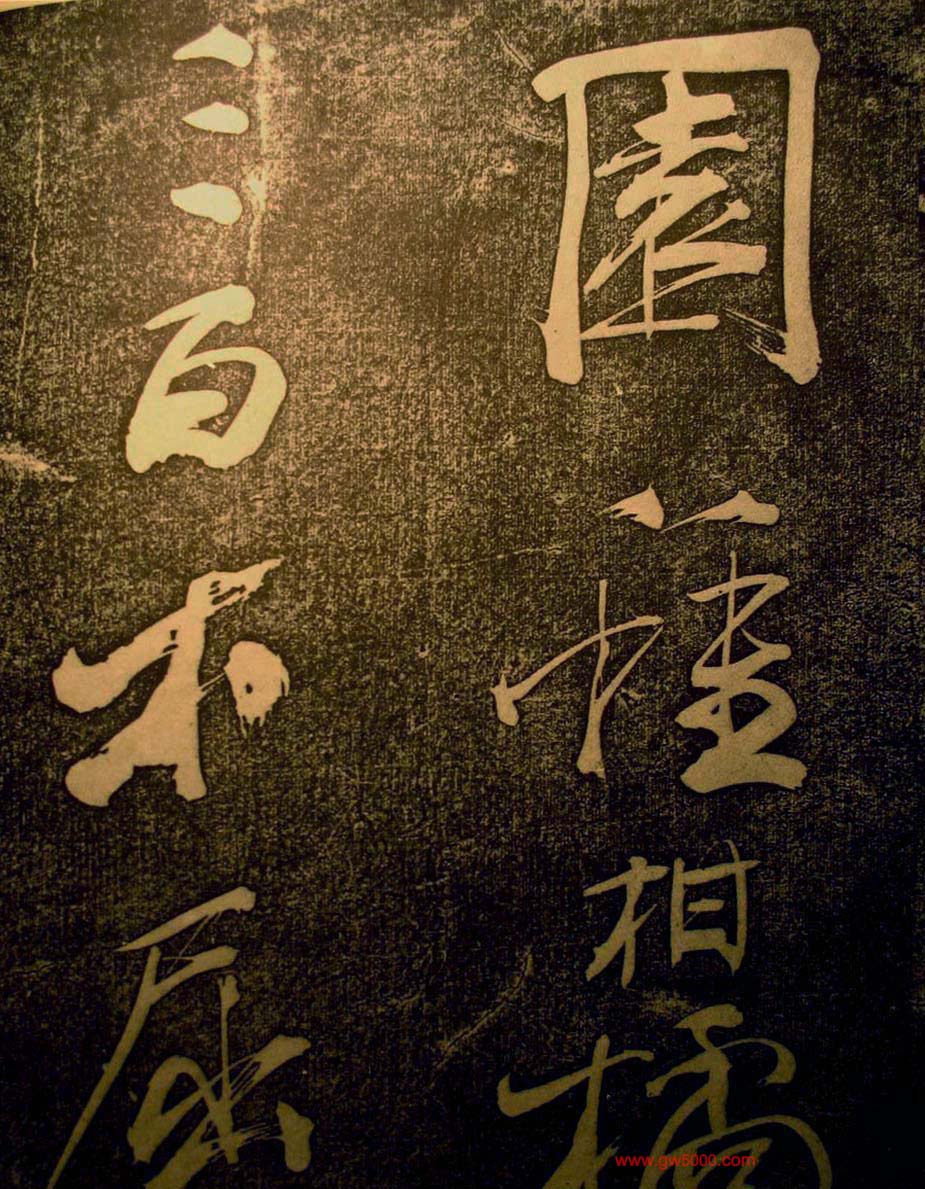 園種柑橘
三百本屈
www.gw5000.com